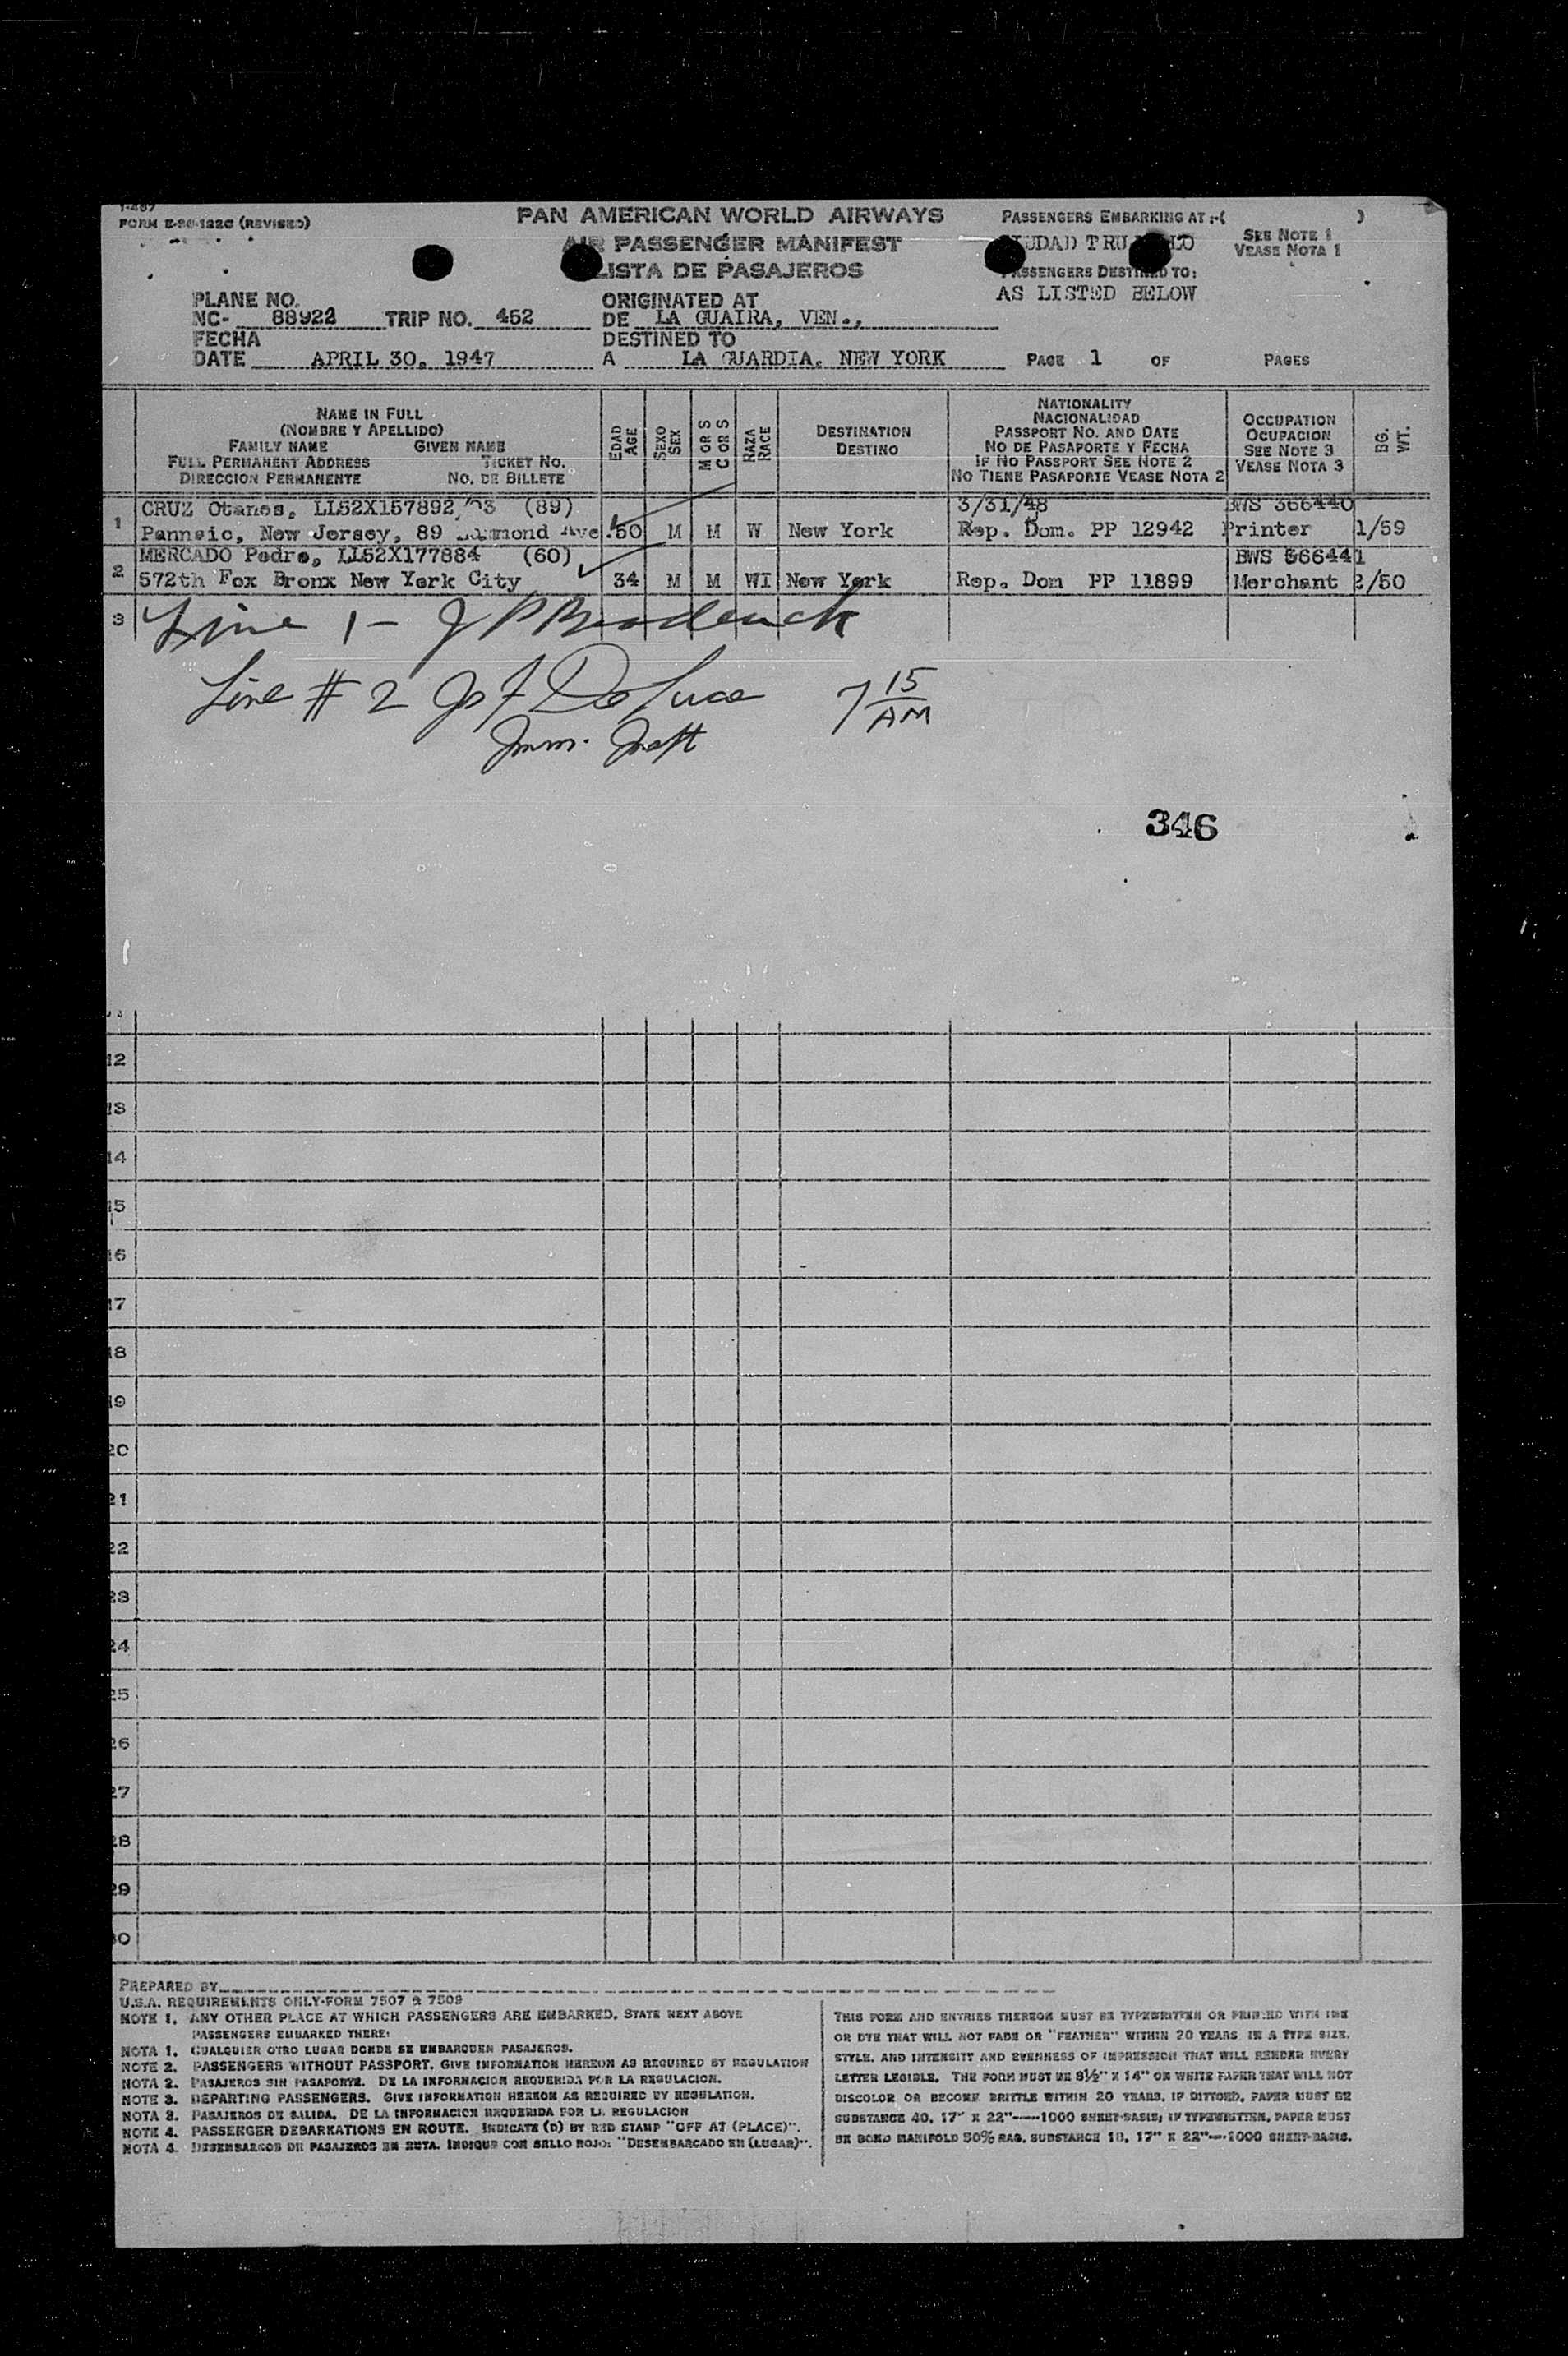 FORM E-96-122C (REVISED)
PAN AMERICAN WORLD AIRWAYS
AIR PASSENGER MANIFEST
LISTA DE PASAJEROS
PASSENGERS EMBARKING AT :-( )
CIUDAD TRUJILLO
SEE NOTE 1
VEASE NOTA 1
PASSENGERS DESTINED TO:
AS LISTED BELOW
PLANE NO.
NC- 88922 TRIP NO. 452
ORIGINATED AT
DE LA GUAIRA, VEN.,
FECHA
DATE APRIL 30, 1947
DESTINED TO
A LA GUARDIA, NEW YORK
PAGE 1 OF PAGES
NAME IN FULL
(NOMBRE Y APELLIDO)
FAMILY NAME GIVEN NAME
FULL PERMANENT ADDRESS TICKET NO.
DIRECCION PERMANENTE NO. DE BILLETE
EDAD
AGE
SEXO
SEX
M OR S
C OR S
RAZA
RACE
DESTINATION
DESTINO
NATIONALITY
NACIONALIDAD
PASSPORT NO. AND DATE
NO DE PASAPORTE Y FECHA
IF NO PASSPORT SEE NOTE 2
NO TIENE PASAPORTE VEASE NOTA 2
OCCUPATION
OCUPACION
SEE NOTE 3
VEASE NOTA 3
BG.
WT.
CRUZ Otanes, LL52X157892/93 (89) 3/31/48 BWS 366440
1 Pannsic, New Jersey, 89 Ave. 50 M M W New York Rep. Dom. PP 12942 Printer 1/59
MERCADO Pedro, LL52X177884 (60) BWS 566441
2 572th Fox Bronx New York City 34 M M WI New York Rep. Dom PP 11899 Merchant 2/50
3 Line 1 - J P Broderick
Line # 2 Jos F DeLuca 7 15 AM
Imm. Inspt
346
12
13
14
15
16
17
18
19
20
21
22
23
24
25
26
27
28
29
30
PREPARED BY
U.S.A. REQUIREMENTS ONLY-FORM 7507 & 7509
NOTE 1. ANY OTHER PLACE AT WHICH PASSENGERS ARE EMBARKED, STATE NEXT ABOVE
PASSENGERS EMBARKED THERE:
NOTA 1. CUALQUIER OTRO LUGAR DONDE SE EMBARQUEN PASAJEROS.
NOTE 2. PASSENGERS WITHOUT PASSPORT. GIVE INFORMATION HEREON AS REQUIRED BY REGULATION
NOTA 2. PASAJEROS SIN PASAPORTE. DE LA INFORMACION REQUERIDA POR LA REGULACION.
NOTE 3. DEPARTING PASSENGERS. GIVE INFORMATION HEREON AS REQUIRED BY REGULATION.
NOTA 3. PASAJEROS DE SALIDA. DE LA INFORMACION REQUERIDA POR LA REGULACION
NOTE 4. PASSENGER DEBARKATIONS EN ROUTE. INDICATE (D) BY RED STAMP "OFF AT (PLACE)".
NOTA 4. DESEMBARCOS DE PASAJEROS EN RUTA. INDIQUE CON SELLO ROJO: "DESEMBARCADO EN (LUGAR)".
THIS FORM AND ENTRIES THEREON MUST BE TYPEWRITTEN OR PRINTED WITH INK
OR DYE THAT WILL NOT FADE OR "FEATHER" WITHIN 20 YEARS, IN A TYPE SIZE,
STYLE, AND INTENSITY AND EVENNESS OF IMPRESSION THAT WILL RENDER EVERY
LETTER LEGIBLE. THE FORM MUST BE 8½" X 14" ON WHITE PAPER THAT WILL NOT
DISCOLOR OR BECOME BRITTLE WITHIN 20 YEARS. IF DITTOED, PAPER MUST BE
SUBSTANCE 40, 17" X 22"-----1000 SHEET-BASIS; IF TYPEWRITTEN, PAPER MUST
BE BOND MANIFOLD 50% RAG, SUBSTANCE 18, 17" X 22"---1000 SHEET-BASIS.